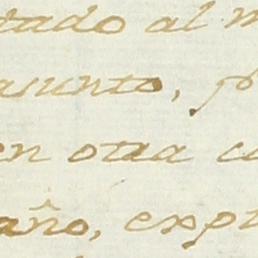 tado al m
asunto, p
en otra c
año, exp